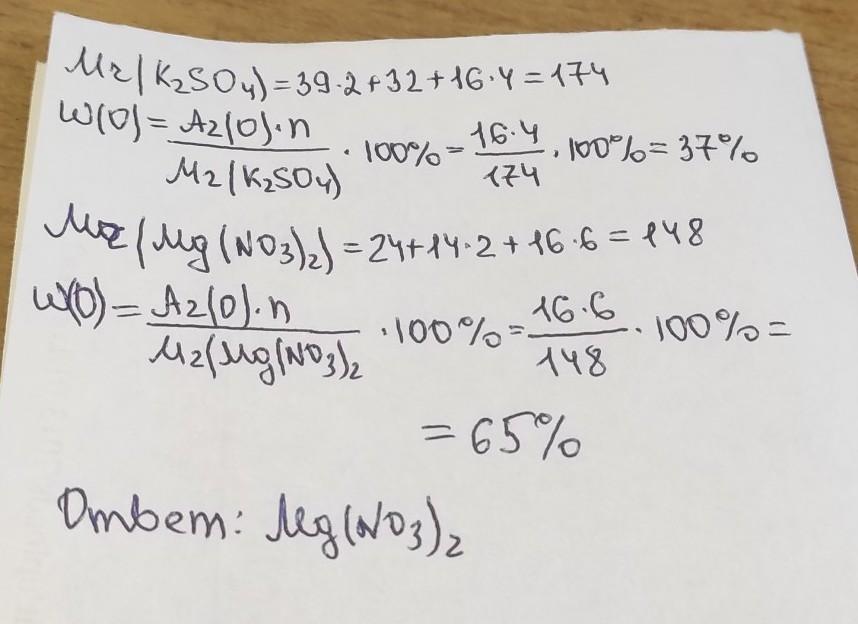 Mr(K₂SO₄)=39·2+32+16·4=174
W(O)=Ar(O)·n/Mr(K₂SO₄)·100%=16·4/174·100%=37%
Mr(Mg(NO₃)₂)=24+14·2+16·6=148
W(O)=Ar(O)·n/Mr(Mg(NO₃)₂·100%=16·6/148·100%=
=65%
Ответ: Mg(NO₃)₂